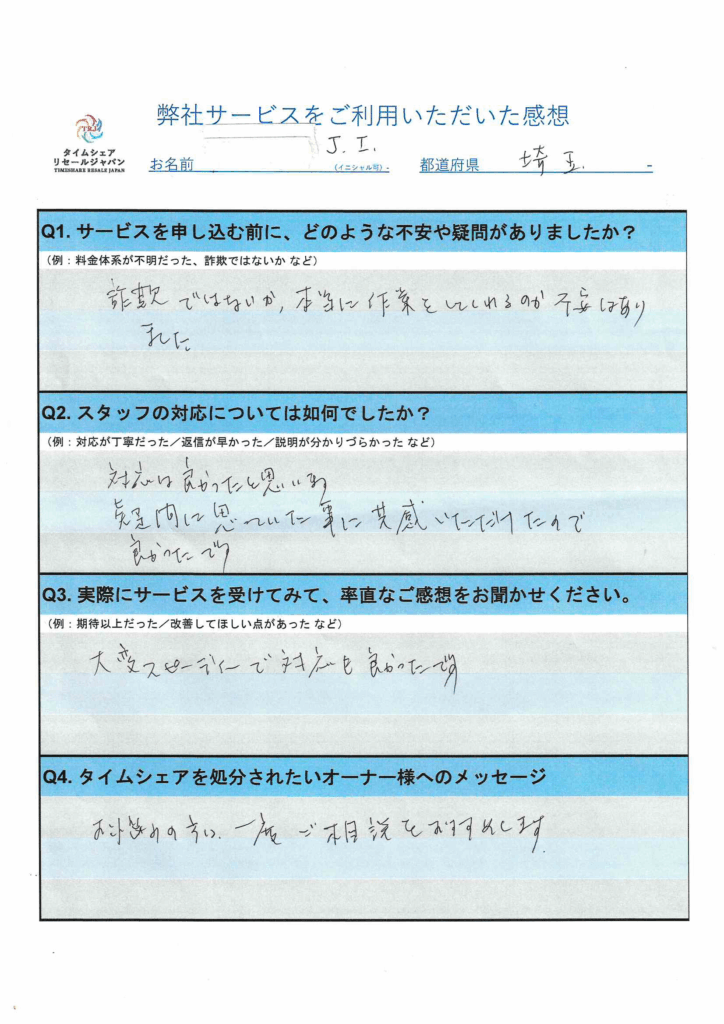 弊社サービスをご利用いただいた感想
タイムシェア
リセールジャパン
TIMESHARE RESALE JAPAN
お名前 J.I. (イニシャル可)- 都道府県 埼玉. -
Q1. サービスを申し込む前に、どのような不安や疑問がありましたか？
(例：料金体系が不明だった、詐欺ではないか など)
詐欺ではないか, 本当に作業をしてくれるのか 不安はあり
ました
Q2. スタッフの対応については如何でしたか？
(例：対応が丁寧だった／返信が早かった／説明が分かりづらかった など)
対応は良かったと思います
疑問に思っていた事に共感いただけたので
良かったです
Q3. 実際にサービスを受けてみて、率直なご感想をお聞かせください。
(例：期待以上だった／改善してほしい点があった など)
大変スピーディーで対応も良かったです
Q4. タイムシェアを処分されたいオーナー様へのメッセージ
お悩みの方い、一度ご相談をおすすめします